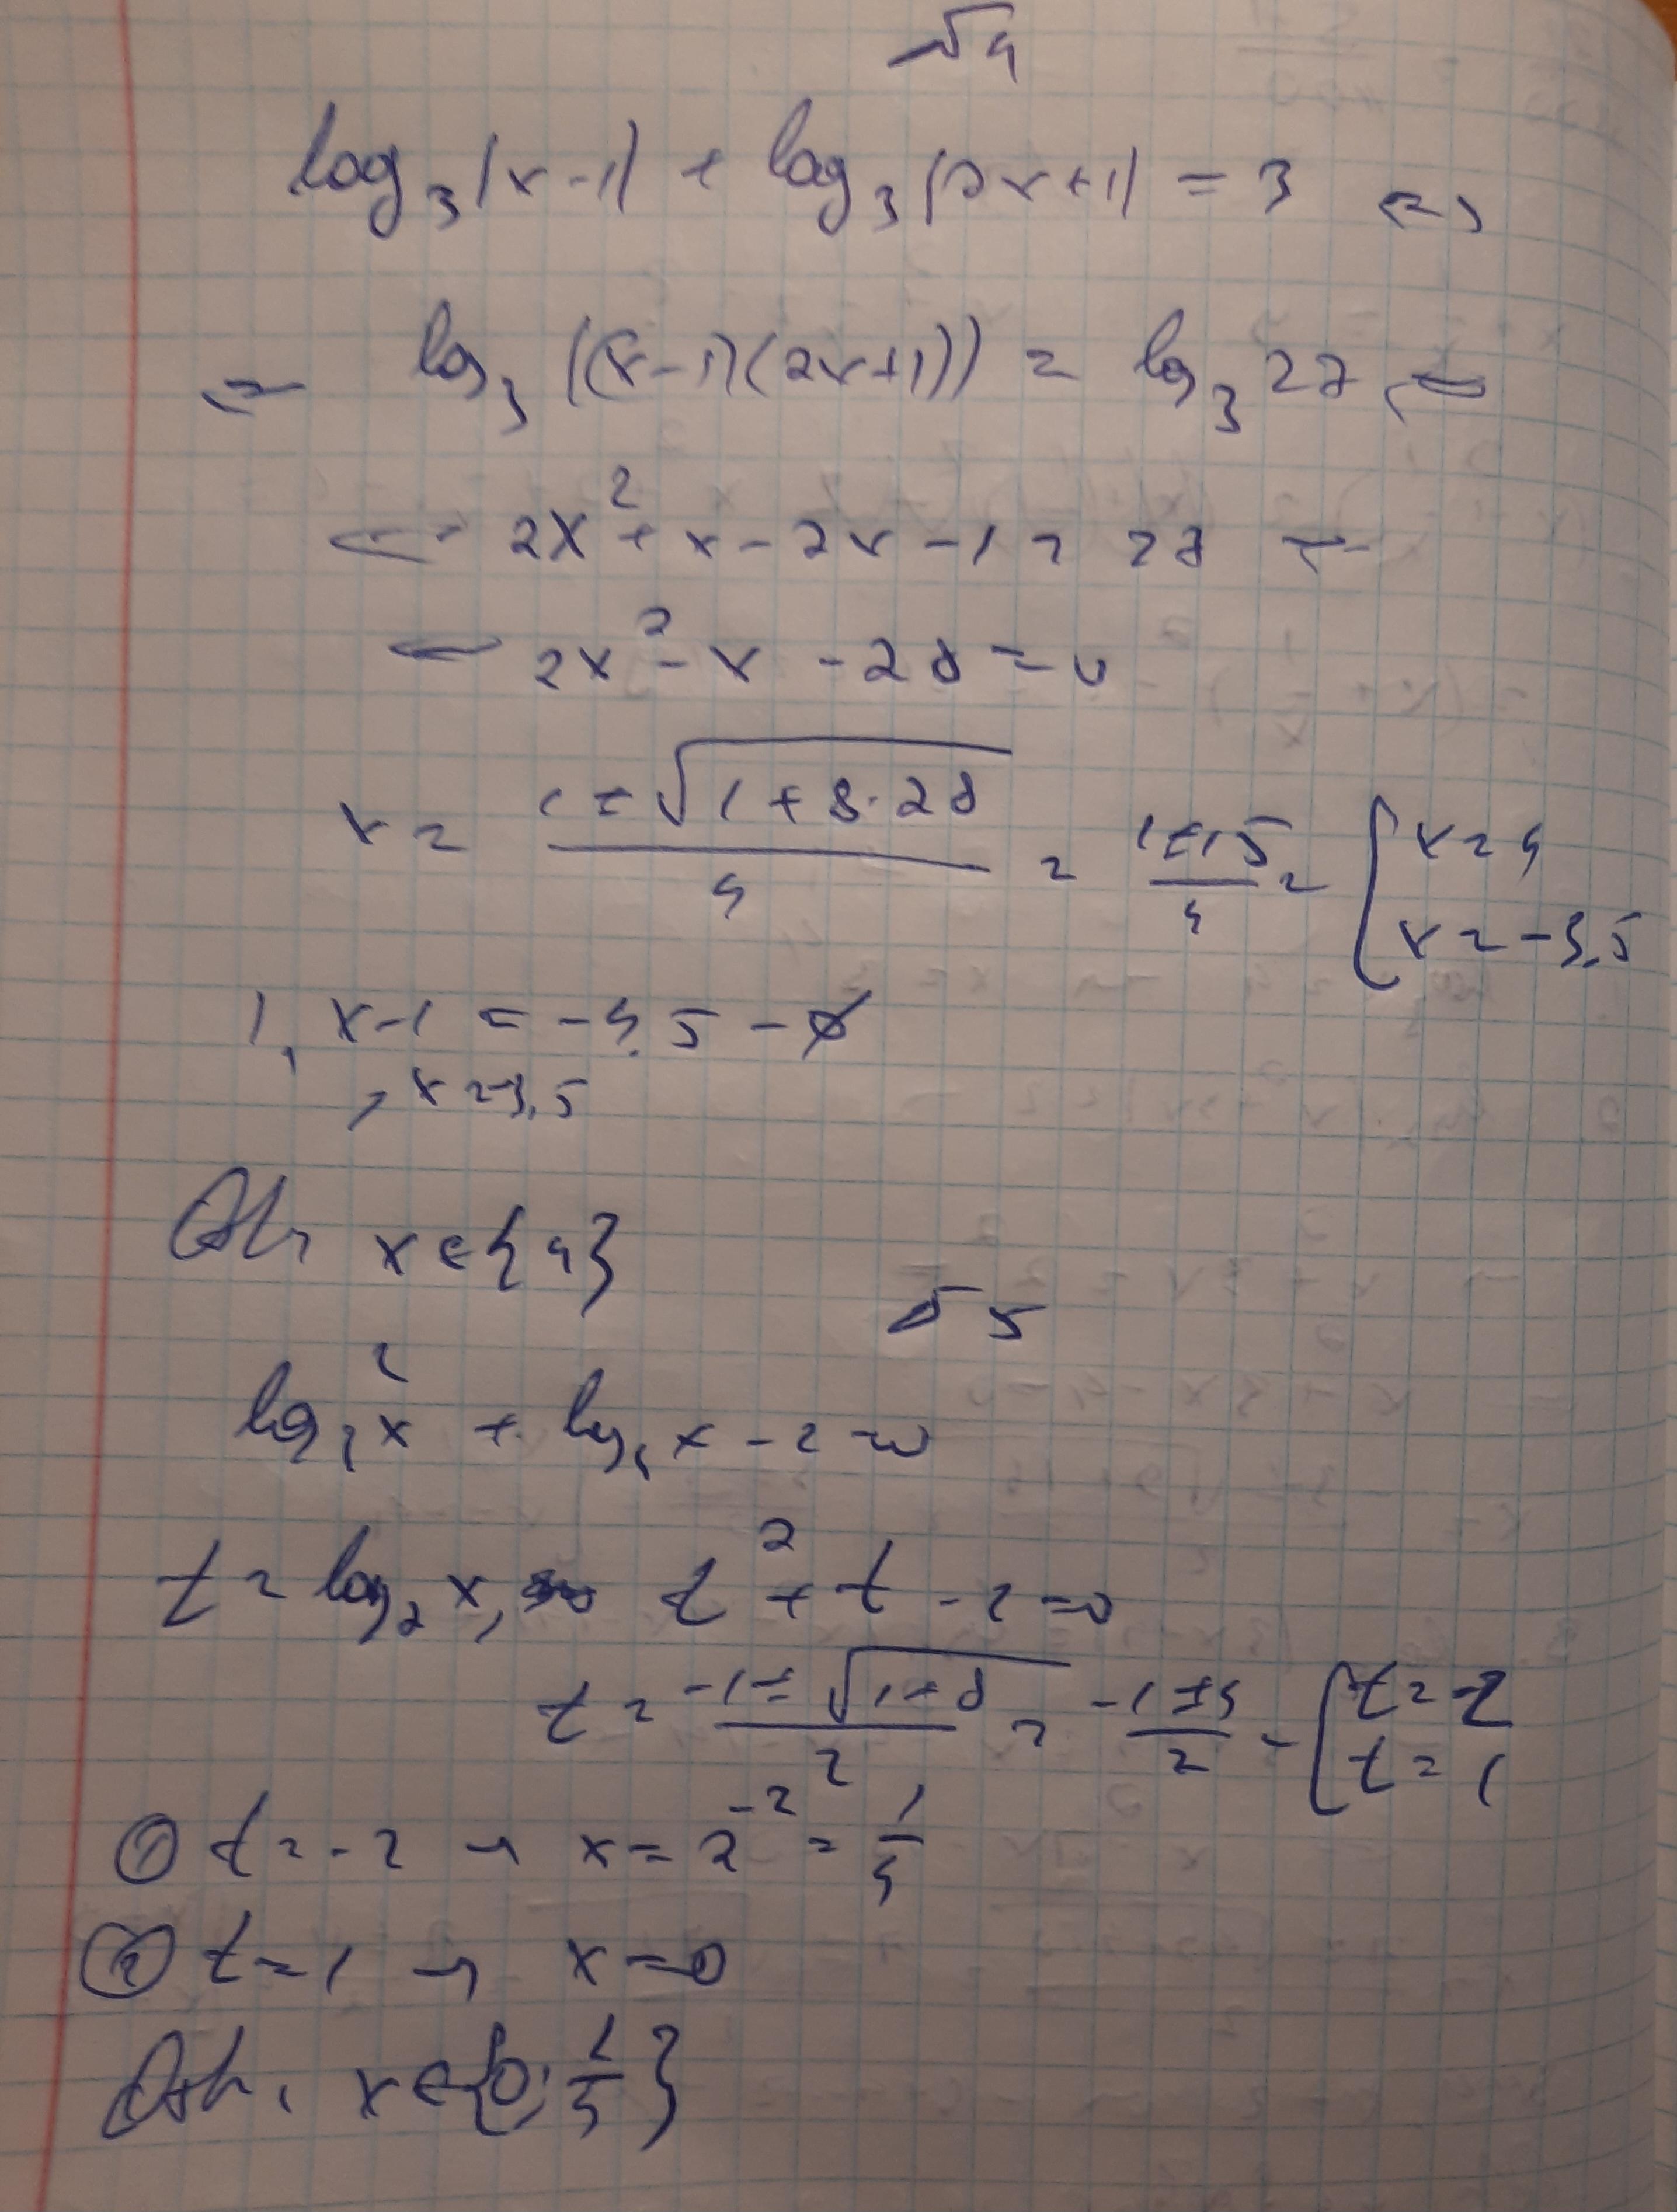 №4
log₃(x-1) + log₃(2x+1) = 3 <=>
<=> log₃((x-1)(2x+1)) = log₃27 <=>
<=> 2x² + x - 2x - 1 = 27 <=>
<=> 2x² - x - 28 = 0
x = (1 ± √(1 + 8·28))/4 = (1 ± 15)/4 = [x = 4 x = -3,5
1, x-1 = -4,5 - ∅
, x = -3,5
Отв x ∈ {4}
№5
log₂²x + log₂x - 2 = 0
t = log₂x, t² + t - 2 = 0
t = (-1 ± √(1+8))/2 = (-1 ± 3)/2 = [t = -2 t = 1
① t = -2 → x = 2⁻² = 1/4
② t = 1 → x = 0
Отв. x ∈ {0; 1/4}